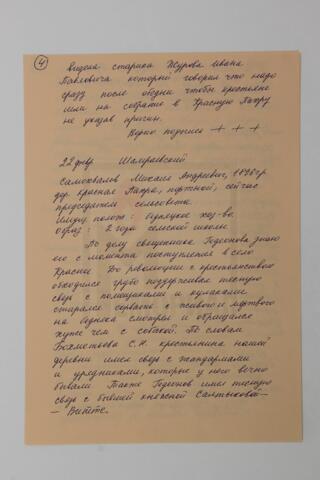 4
видела старика Журова Ивана
Павловича который говорил что надо
сразу после обедни чтобы крестьяне
шли на собрание в Красную Пахру
не указав причин.
Верно подпись + + +
22 февр. Шалраевский
Самохвалов Михаил Андреевич, 1896 г р
дер. Красная Пахра, портной, сейчас
председатель сельсовета
Имущ. полож: бедняцкое хоз-во.
Образ: 2 года сельской школы
По делу священника Гедеонова знаю
его с момента поступления в село
Красное До революции с крестьянством
обходился грубо поддерживал тесную
связь с помещиками и кулаками
старался сорвать с живого и мертвого
на бедноту смотрел и обращался
хуже чем с собакой. По словам
Бахметьева С.Н. крестьянина нашей
деревни имел связь с жандармами
и урядниками, которые у него вечно
бывали Также Гедеонов имел тесную
связь с бывшей княжной Салтыковой–
– Витте.